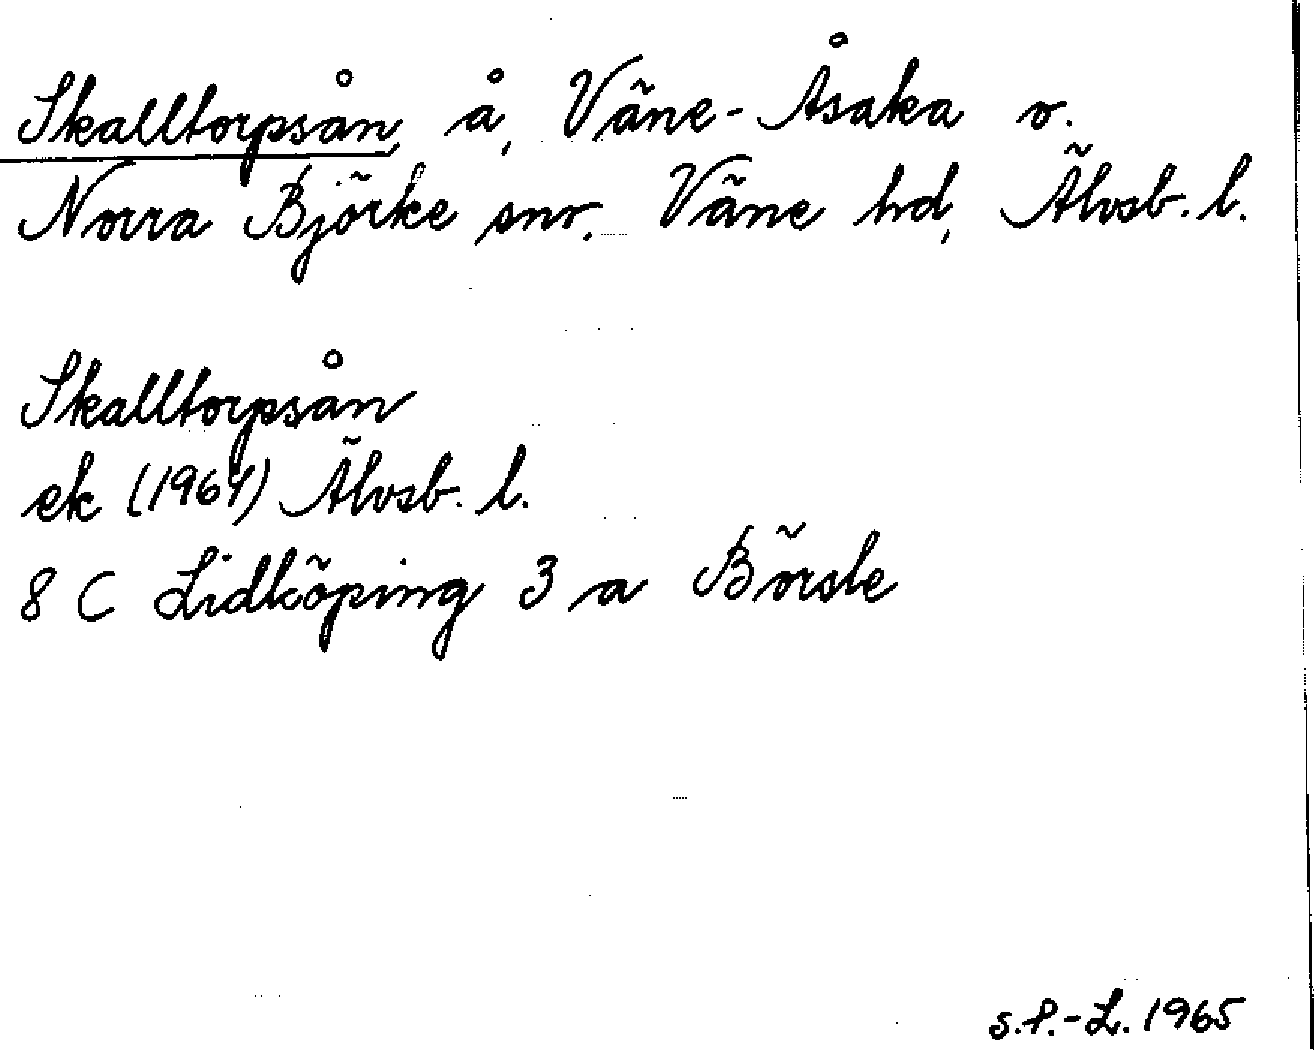 Skalltorpsån, å, Väne-Åsaka o.
Norra Björke snr, Väne hd, Älvsb. l.
Skalltorpsån
ek (1964) Älvsb. l.
8 C Lidköping 3 a Börsle
S.P.-L. 1965